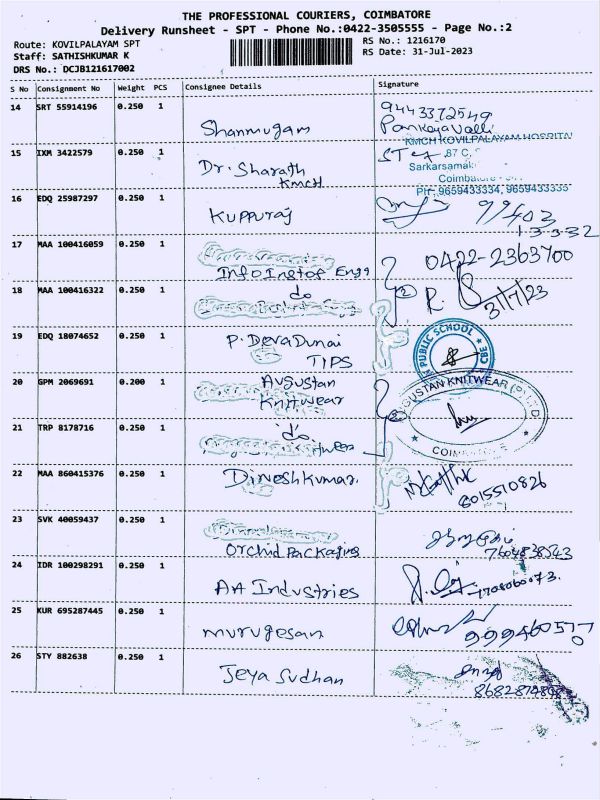 THE PROFESSIONAL COURIERS, COIMBATORE
Delivery Runsheet - SPT - Phone No.:0422-3505555 - Page No.:2
Route: KOVILPALAYAM SPT
RS No.: 1216170
Staff: SATHISHKUMAR K
RS Date: 31-Jul-2023
DRS No.: DCJB121617002
S No Consignment No Weight PCS Consignee Details Signature
14 SRT 55914196 0.250 1
9443372549
Shanmugam
KMCH KOVILPALAYAM HOSPITAL
15 IXM 3422579 0.250 1
87 C,
Dr. Sharath
KMCH
Sarkarsamak
Coimbatore
PH: 9659433334, 9659433335
16 EDQ 25987297 0.250 1
Kuppuraj
99403
13332
17 MAA 100416059 0.250 1
0422-2363700
Info Inst of Engg
18 MAA 100416322 0.250 1
do
2
31/7/23
19 EDQ 18074652 0.250 1
P. Devadurai
TIPS
PUBLIC SCHOOL
CBE
20 GPM 2069691 0.200 1
Augustan
Knitwear
GUSTAN KNITWEAR (P) LTD
21 TRP 8178716 0.250 1
do
22 MAA 860415376 0.250 1
Dineshkumar.
8015510826
23 SVK 40059437 0.250 1
Orchid Packaging
7604838543
24 IDR 100298291 0.250 1
AA Industries
25 KUR 695287445 0.250 1
Murugesan
26 STY 882638 0.250 1
Jeya Sudhan